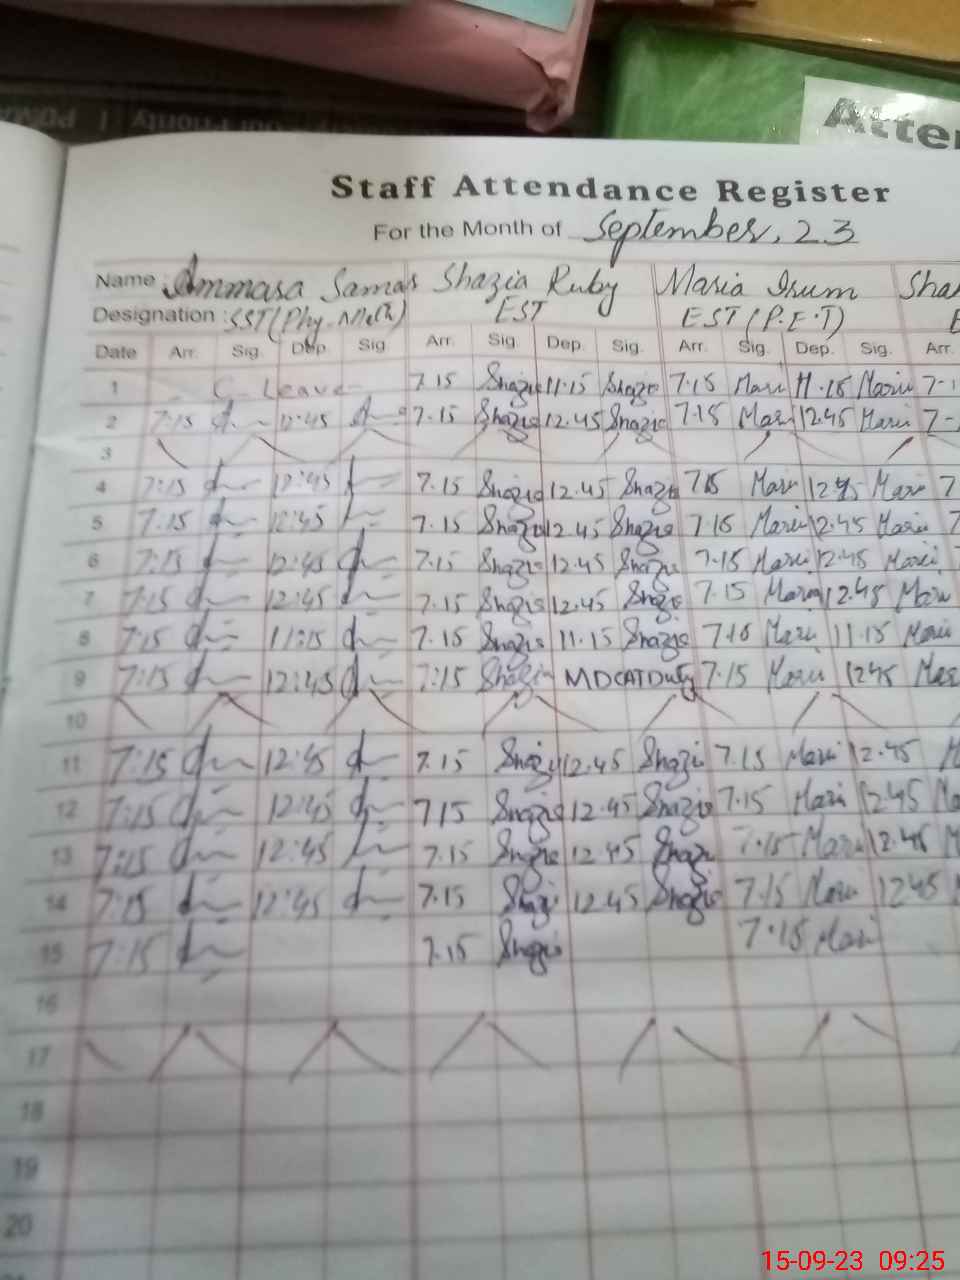 Atte
Staff Attendance Register
For the Month of September, 23
Name : Ammara Samar Shazia Ruby Maria Irum Sha
Designation : SST(Phy-Math) EST EST (P.E.T) E
Date Arr. Sig. Dep. Sig. Arr. Sig. Dep. Sig. Arr. Sig. Dep. Sig. Arr.
1 C. Leave 7.15 Shazia 11.15 Shazia 7.15 Mari 11.15 Maria 7-1
2 7:15 12:45 7.15 Shazia 12.45 Shazia 7.15 Mar 12.45 Maria 7-
3
4 7:15 12:45 7.15 Shazia 12.45 Shazia 7.15 Mari 12.45 Mari 7
5 7:15 12:45 7.15 Shazia 12.45 Shazia 7.15 Maria 12.45 Maria 7
6 7:15 12:45 7.15 Shazia 12.45 Shazia 7.15 Maria 12.45 Mari 7
7 7:15 12:45 7.15 Shazia 12.45 Shazi 7.15 Maria 12.45 Mari
8 7:15 11:15 7.15 Shazia 11.15 Shazia 7.15 Mari 11.15 Mari
9 7:15 12:45 7:15 Shazia MDCAT Duty 7.15 Maria 1245 Mar
10
11 7:15 12:45 7.15 Shazi 12.45 Shazi 7.15 Mari 12.45 M
12 7:15 12:45 715 Shazia 12.45 Shazia 7.15 Mari 12.45 Ma
13 7:15 12:45 7.15 Shazia 12.45 Shazi 7.15 Maria 12.45 M
14 7:15 12:45 7.15 Shazi 12.45 Shazia 7.15 Mari 1245 M
15 7:15 7.15 Shazia 7.15 Mari
16
17
18
19
20
15-09-23 09:25